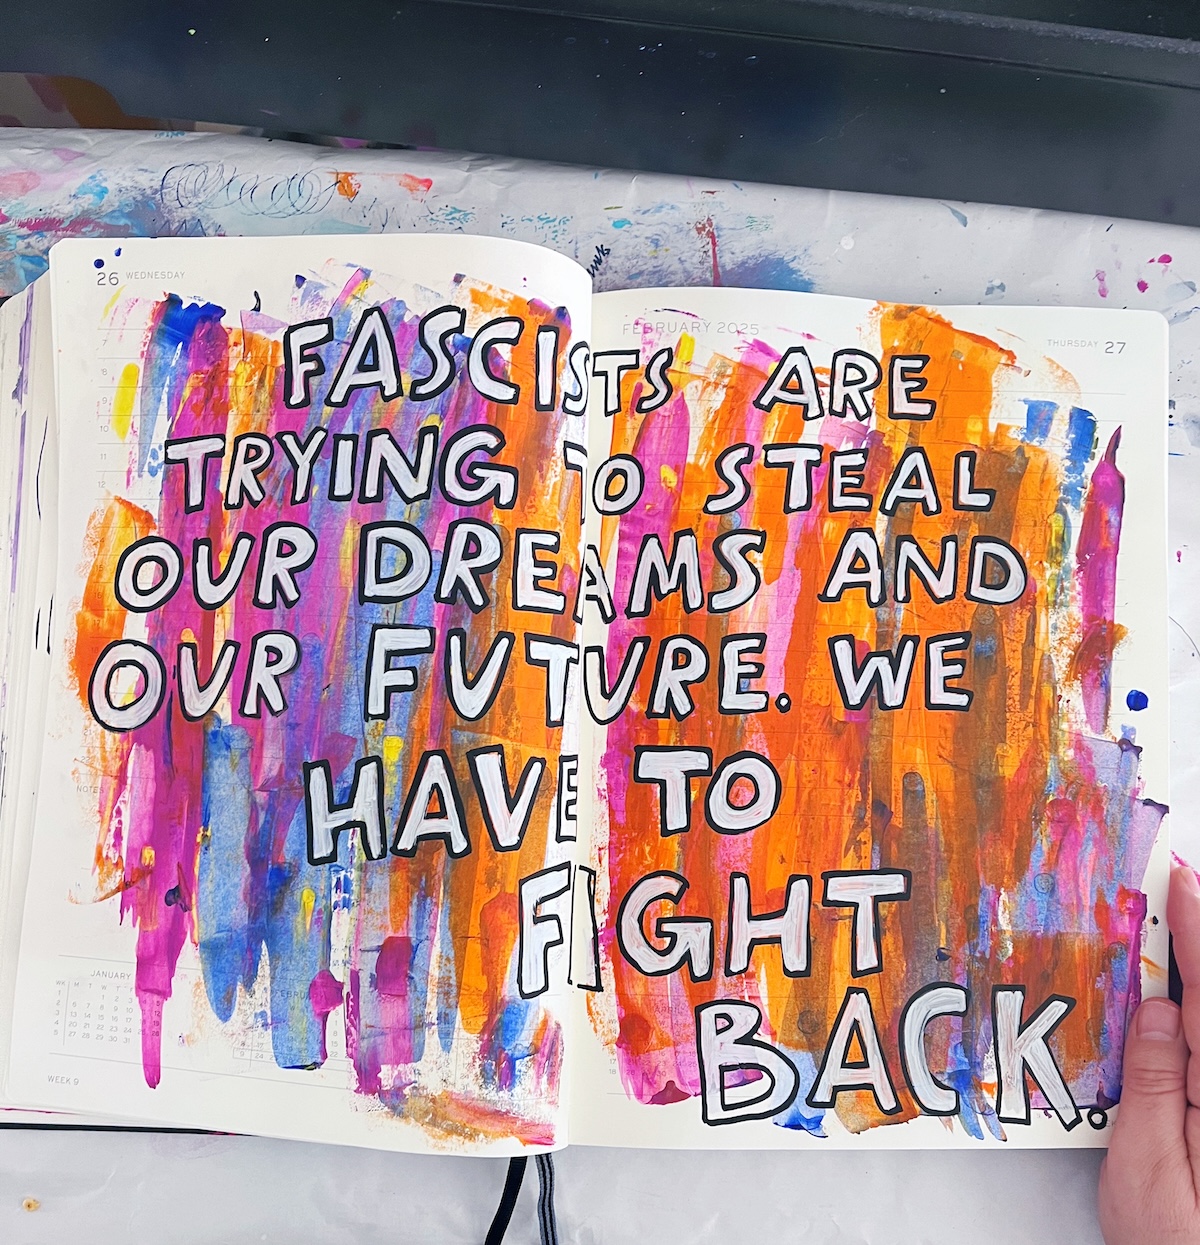 26 WEDNESDAY
FEBRUARY 2025
THURSDAY 27
FASCISTS ARE
TRYING TO STEAL
OUR DREAMS AND
OUR FUTURE. WE
HAVE TO
FIGHT
BACK.
7
8
9
10
11
12
NOTES
JANUARY
WK M T W T
1 1 2 3
2 6 7 8 9 10
3 13 14 15 16 17
4 20 21 22 23 24
5 27 28 29 30 31
FEBRUARY
9 24
WEEK 9